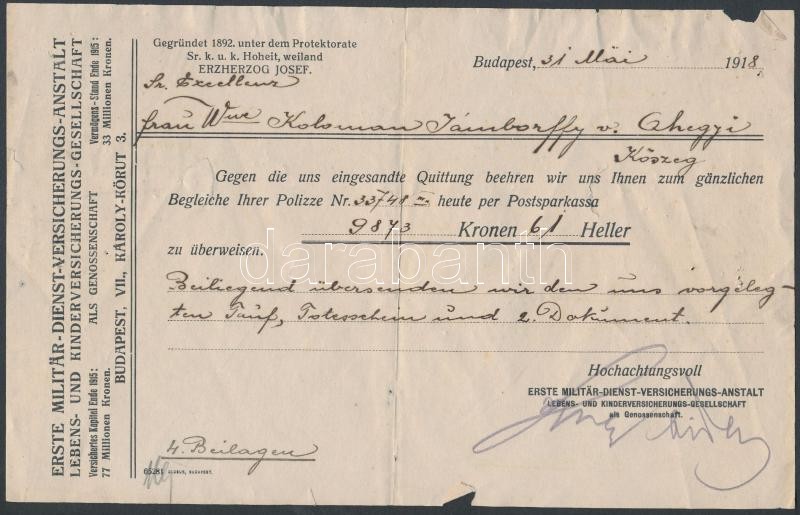 ERSTE MILITÄR-DIENST-VERSICHERUNGS-ANSTALT
LEBENS- UND KINDERVERSICHERUNGS-GESELLSCHAFT
Versichertes Kapital Ende 1915: ALS GENOSSENSCHAFT Vermögens-Stand Ende 1915:
77 Millionen Kronen. 33 Millionen Kronen.
BUDAPEST, VII., KÁROLY-KÖRUT 3.
Gegründet 1892. unter dem Protektorate
Sr. k. u. k. Hoheit, weiland
ERZHERZOG JOSEF.
Budapest, 31 Mäi 1918.
Sr. Excellenz
frau Wwe Koloman Támborffy v. Ohegyi
Köszeg
Gegen die uns eingesandte Quittung beehren wir uns Ihnen zum gänzlichen
Begleiche Ihrer Polizze Nr. 33748 heute per Postsparkassa
9873 Kronen 61 Heller
zu überweisen.
darabanth
Beiliegend übersenden wir den uns vorgeleg-
ten Tauf, Totesschein und 2. Dokument.
Hochachtungsvoll
ERSTE MILITÄR-DIENST-VERSICHERUNGS-ANSTALT
LEBENS- UND KINDERVERSICHERUNGS-GESELLSCHAFT
als Genossenschaft.
4. Beilagen
65281 GLOBUS, BUDAPEST.